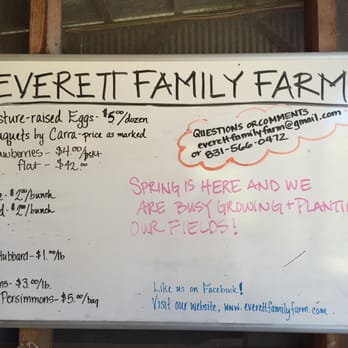 EVERETT FAMILY FARM
sture-raised Eggs- $5.00/dozen
uquets by Carra-price as marked
awberries - $4.00/pskt
flat - $42.00
QUESTIONS OR COMMENTS
everettfamilyfarm@gmail.com
or 831-566-0472
- $2.00/bunch
- $2.00/bunch
SPRING IS HERE AND WE
ARE BUSY GROWING + PLANTI
OUR FIELDS!
Hubbard - $1.00/lb
ns - $3.00/lb.
Persimmons - $5.00/bag
Like us on Facebook!
Visit our website, www.everettfamilyfarm.com